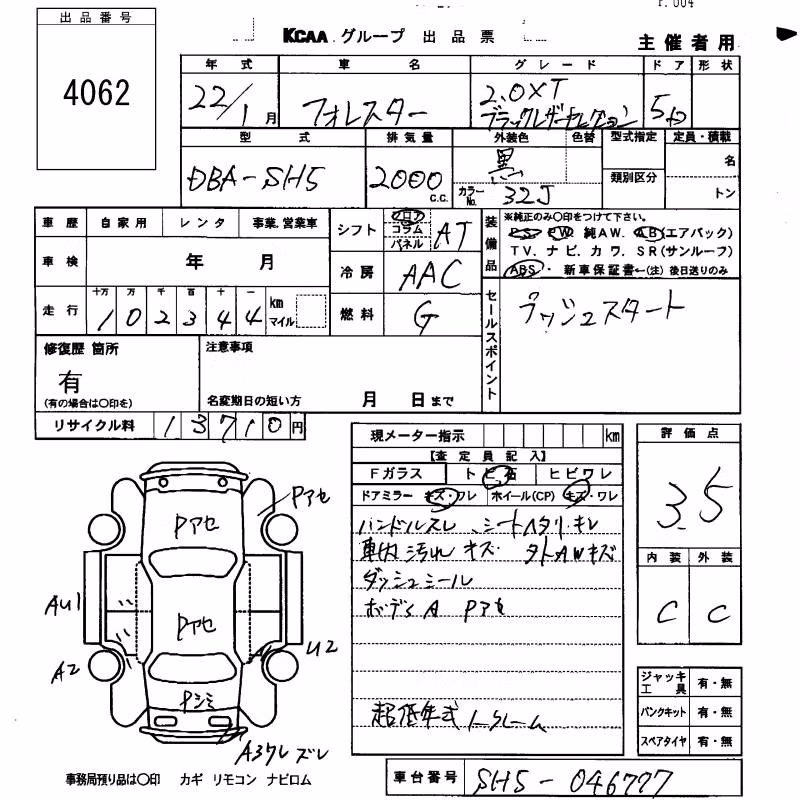 出品番号
4062
KCAA グループ 出品票
主催者用
年式 車名 グレード ドア 形状
22/1月 フォレスター 2.0XT
ブラックレザーセレクション 5D
型式 排気量 外装色 色替 型式指定 定員・積載
DBA-SH5 2000 c.c. 黒 名
類別区分
カラーNo. 32J トン
車歴 自家用 レンタ 事業.営業車
シフト フロア コラム パネル AT
装備品
※純正のみ〇印をつけて下さい。
PS PW 純AW. AB(エアバック)
TV. ナビ. カワ. SR(サンルーフ)
ABS・ 新車保証書←(注) 後日送りのみ
車検 年 月
冷房 AAC
走行 十万 万 千 百 十 一
102344 km マイル
燃料 G
セールスポイント
プッシュスタート
修復歴 箇所
有
(有の場合は〇印を)
注意事項
名変期日の短い方 月 日まで
リサイクル料 13710円
現メーター指示 km
【査定員記入】
Fガラス トビ石 ヒビワレ
ドアミラー キズ・ワレ ホイール(CP) キズ・ワレ
ハンドルスレ、シートヘタリ・キレ
車内汚れ キズ タトAWキズ
ダッシュシール
ボディA Pアセ
超低年式 ノークレーム
評価点
3.5
内装 外装
C C
ジャッキ工具 有・無
パンクキット 有・無
スペアタイヤ 有・無
Pアセ
Pアセ
AU1
Pアセ
A2
U2
Pシミ
A3ワレ ズレ
事務局預り品は〇印 カギ リモコン ナビロム
車台番号 SH5-046777